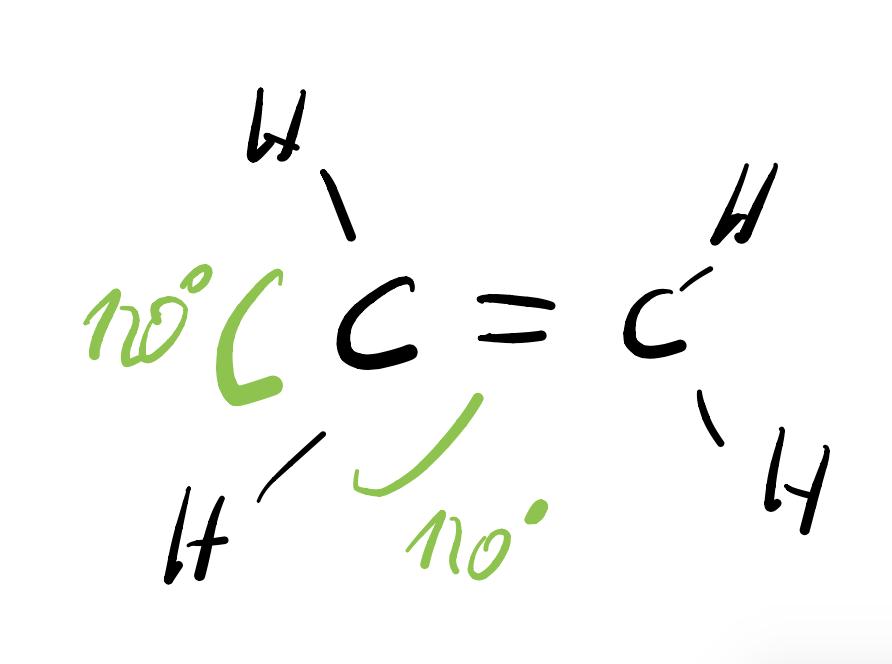 H
H
120° C = C
H
H
120°